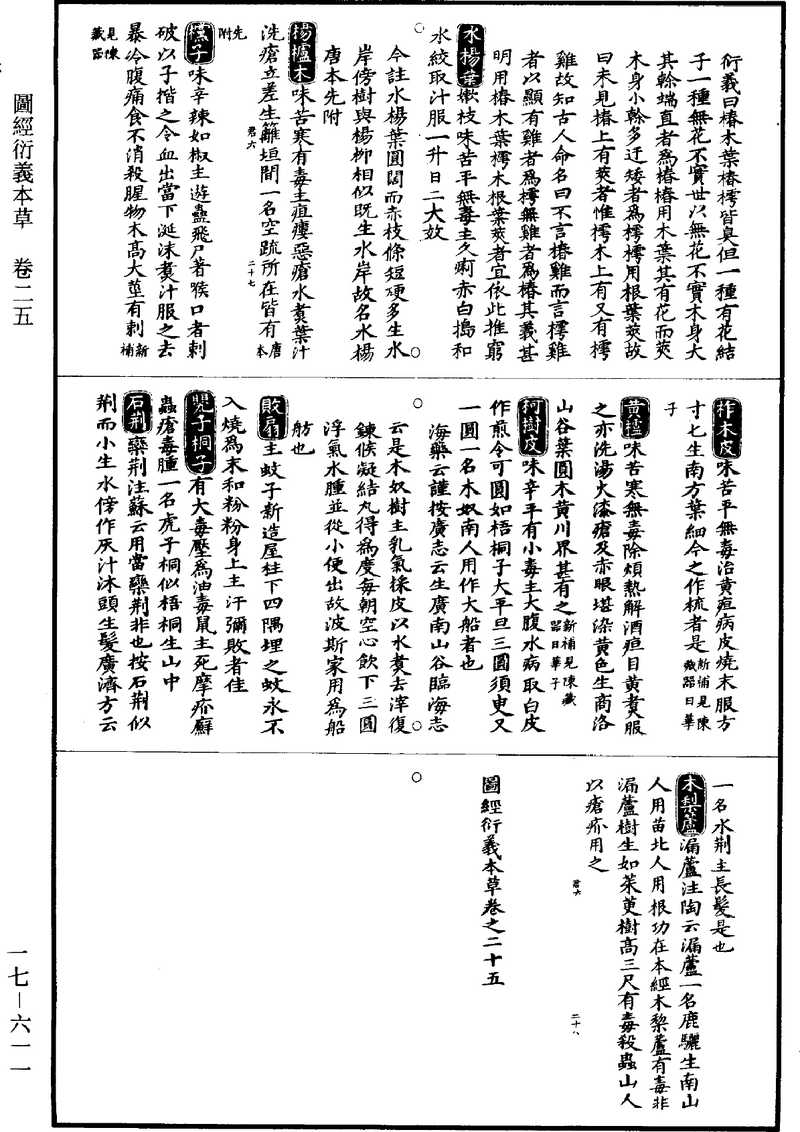 衍義曰椿木葉椿樗皆臭但一種有花結
子一種無花不實世以無花不實木身大
其榦端直者爲椿椿用木葉其有花而莢
木身小榦多迂矮者爲樗樗用根葉莢故
曰未見椿上有莢者惟樗木上有又有樗
雞故知古人命名曰不言椿雞而言樗雞
者以顯有雞者爲樗無雞者爲椿其義甚
明用椿木葉樗木根葉莢者宜依此推窮
水楊葉嫩枝味苦平無毒主久痢赤白搗和
水絞取汁服一升日二大効
今註水楊葉圓闊而赤枝條短硬多生水
岸傍樹與楊柳相似既生水岸故名水楊
唐本先附
楊櫨木味苦寒有毒主疽瘻惡瘡水煑葉汁
洗瘡立差生籬垣間一名空疏所在皆有唐本
先附
君六
二十七
橪子味辛辣如椒主遊蠱飛尸著喉口者刺
破以子揩之令血出當下涎沫煑汁服之去
暴冷腹痛食不消殺腥物木高大莖有刺新補
見陳藏器
柞木皮味苦平無毒治黄疸病皮燒末服方
寸匕生南方葉細今之作梳者是新補見陳藏器日華
子
黄櫨味苦寒無毒除煩熱解酒疸目黄煑服
之亦洗湯火漆瘡及赤眼堪染黄色生商洛
山谷葉圓木黄川界甚有之新補見陳藏器日華子
柯樹皮味辛平有小毒主大腹水病取白皮
作煎令可圓如梧桐子大平旦三圓須臾又
一圓一名木奴南人用作大船者也
海藥云謹按廣志云生廣南山谷臨海志
云是木奴樹主乳氣採皮以水煑去滓復
鍊候凝結丸得爲度每朝空心飲下三圓
浮氣水腫並從小便出故波斯家用爲船
舫也
敗扇主蚊子新造屋柱下四隅埋之蚊永不
入燒爲末和粉粉身上主汗彌敗者佳
甖子桐子有大毒壓爲油毒鼠主死摩疥癬
蟲瘡毒腫一名虎子桐似梧桐生山中
石荆欒荆注蘇云用當欒荆非也按石荆似
荆而小生水傍作灰汁沐頭生髮廣濟方云
一名水荆主長髮是也
木棃蘆漏蘆注陶云漏蘆一名鹿驪生南山
人用苗北人用根功在本經木棃蘆有毒非
漏蘆樹生如茱萸樹高三尺有毒殺蟲山人
以瘡疥用之
君六
二十八
圖經衍義本草卷之二十五
圖經衍義本草　卷二五
一七－六一一